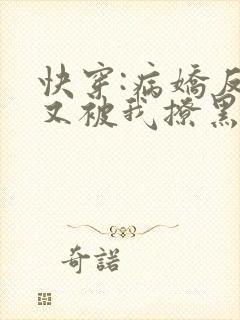 快穿:病嬌反
又被我撩黑
奇諾